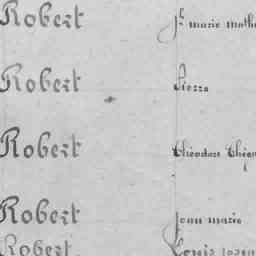 Robert Jh marie math
Robert Pierre
Robert Théodore Théop
Robert Jean marie
Robert Louis Josep